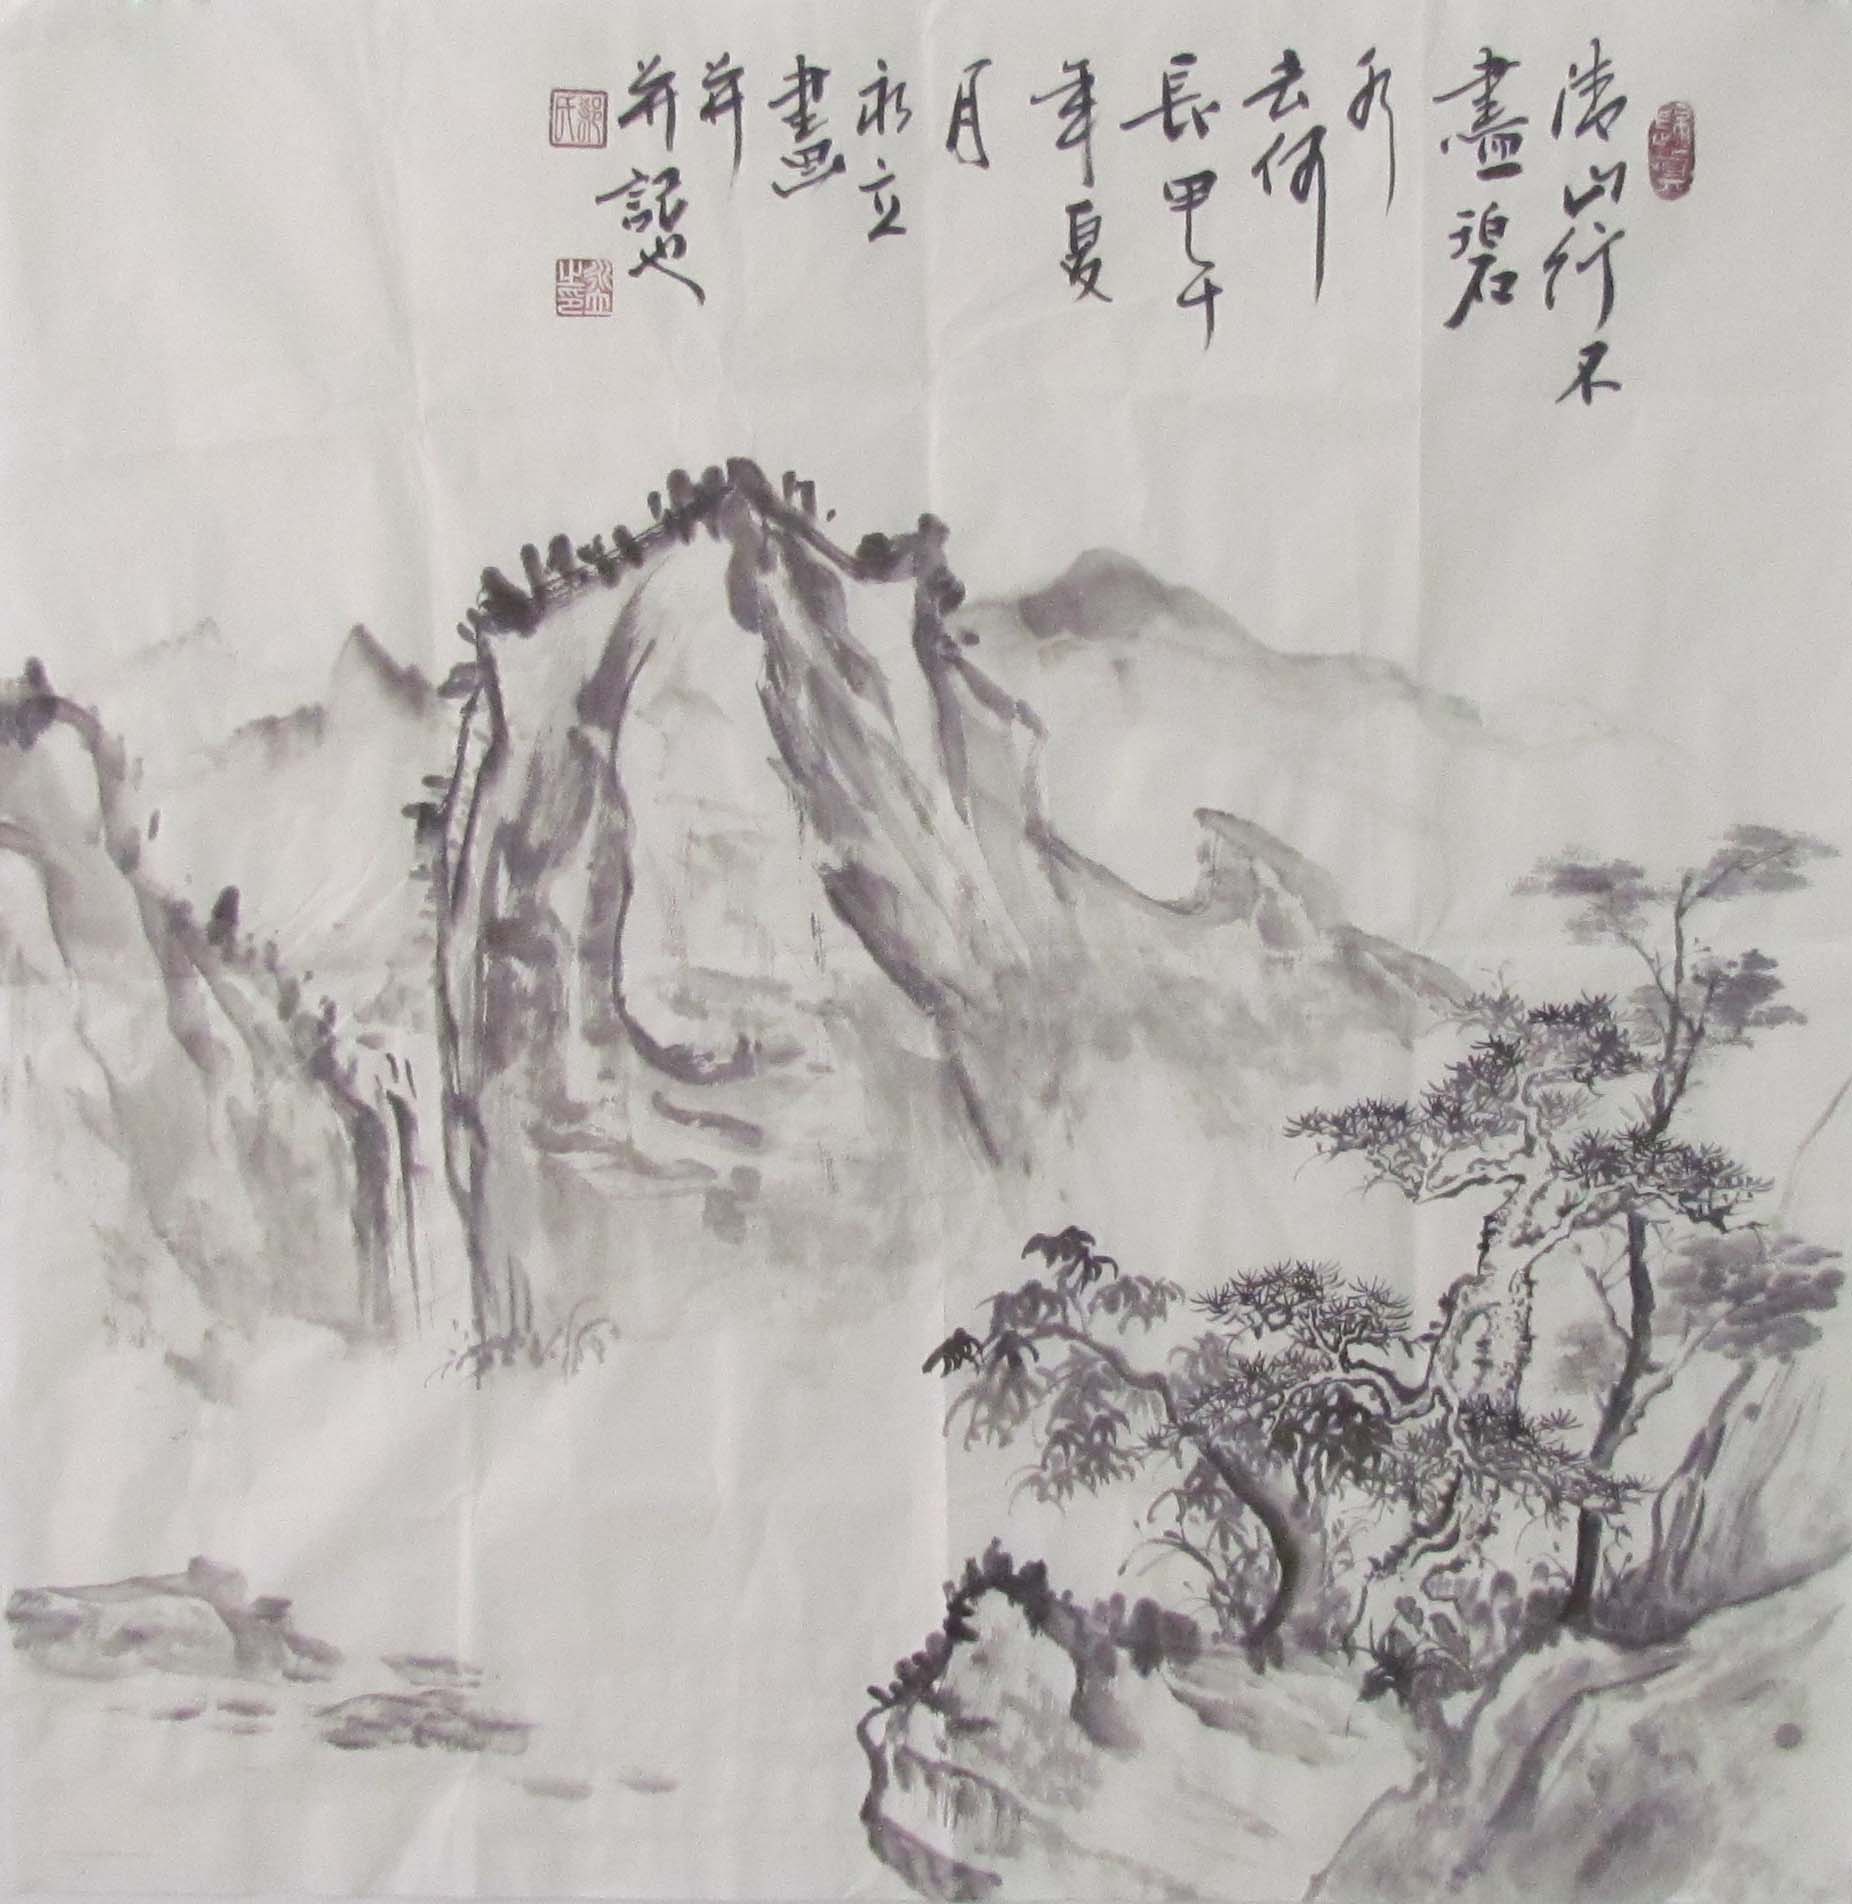 清山行不
盡碧
水
去何
長甲午
年夏
月
永立
畫
并
并記也
永立之印